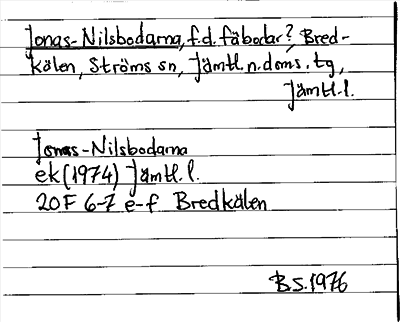 Jonas-Nilsbodarna, f.d. fäbodar? Bred-
kälen, Ströms sn, Jämtl. n. doms. tg,
Jämtl. l.
Jonas-Nilsbodarna
ek (1974) Jämtl. l.
20F 6-7 e-f Bredkälen
B.S. 1976